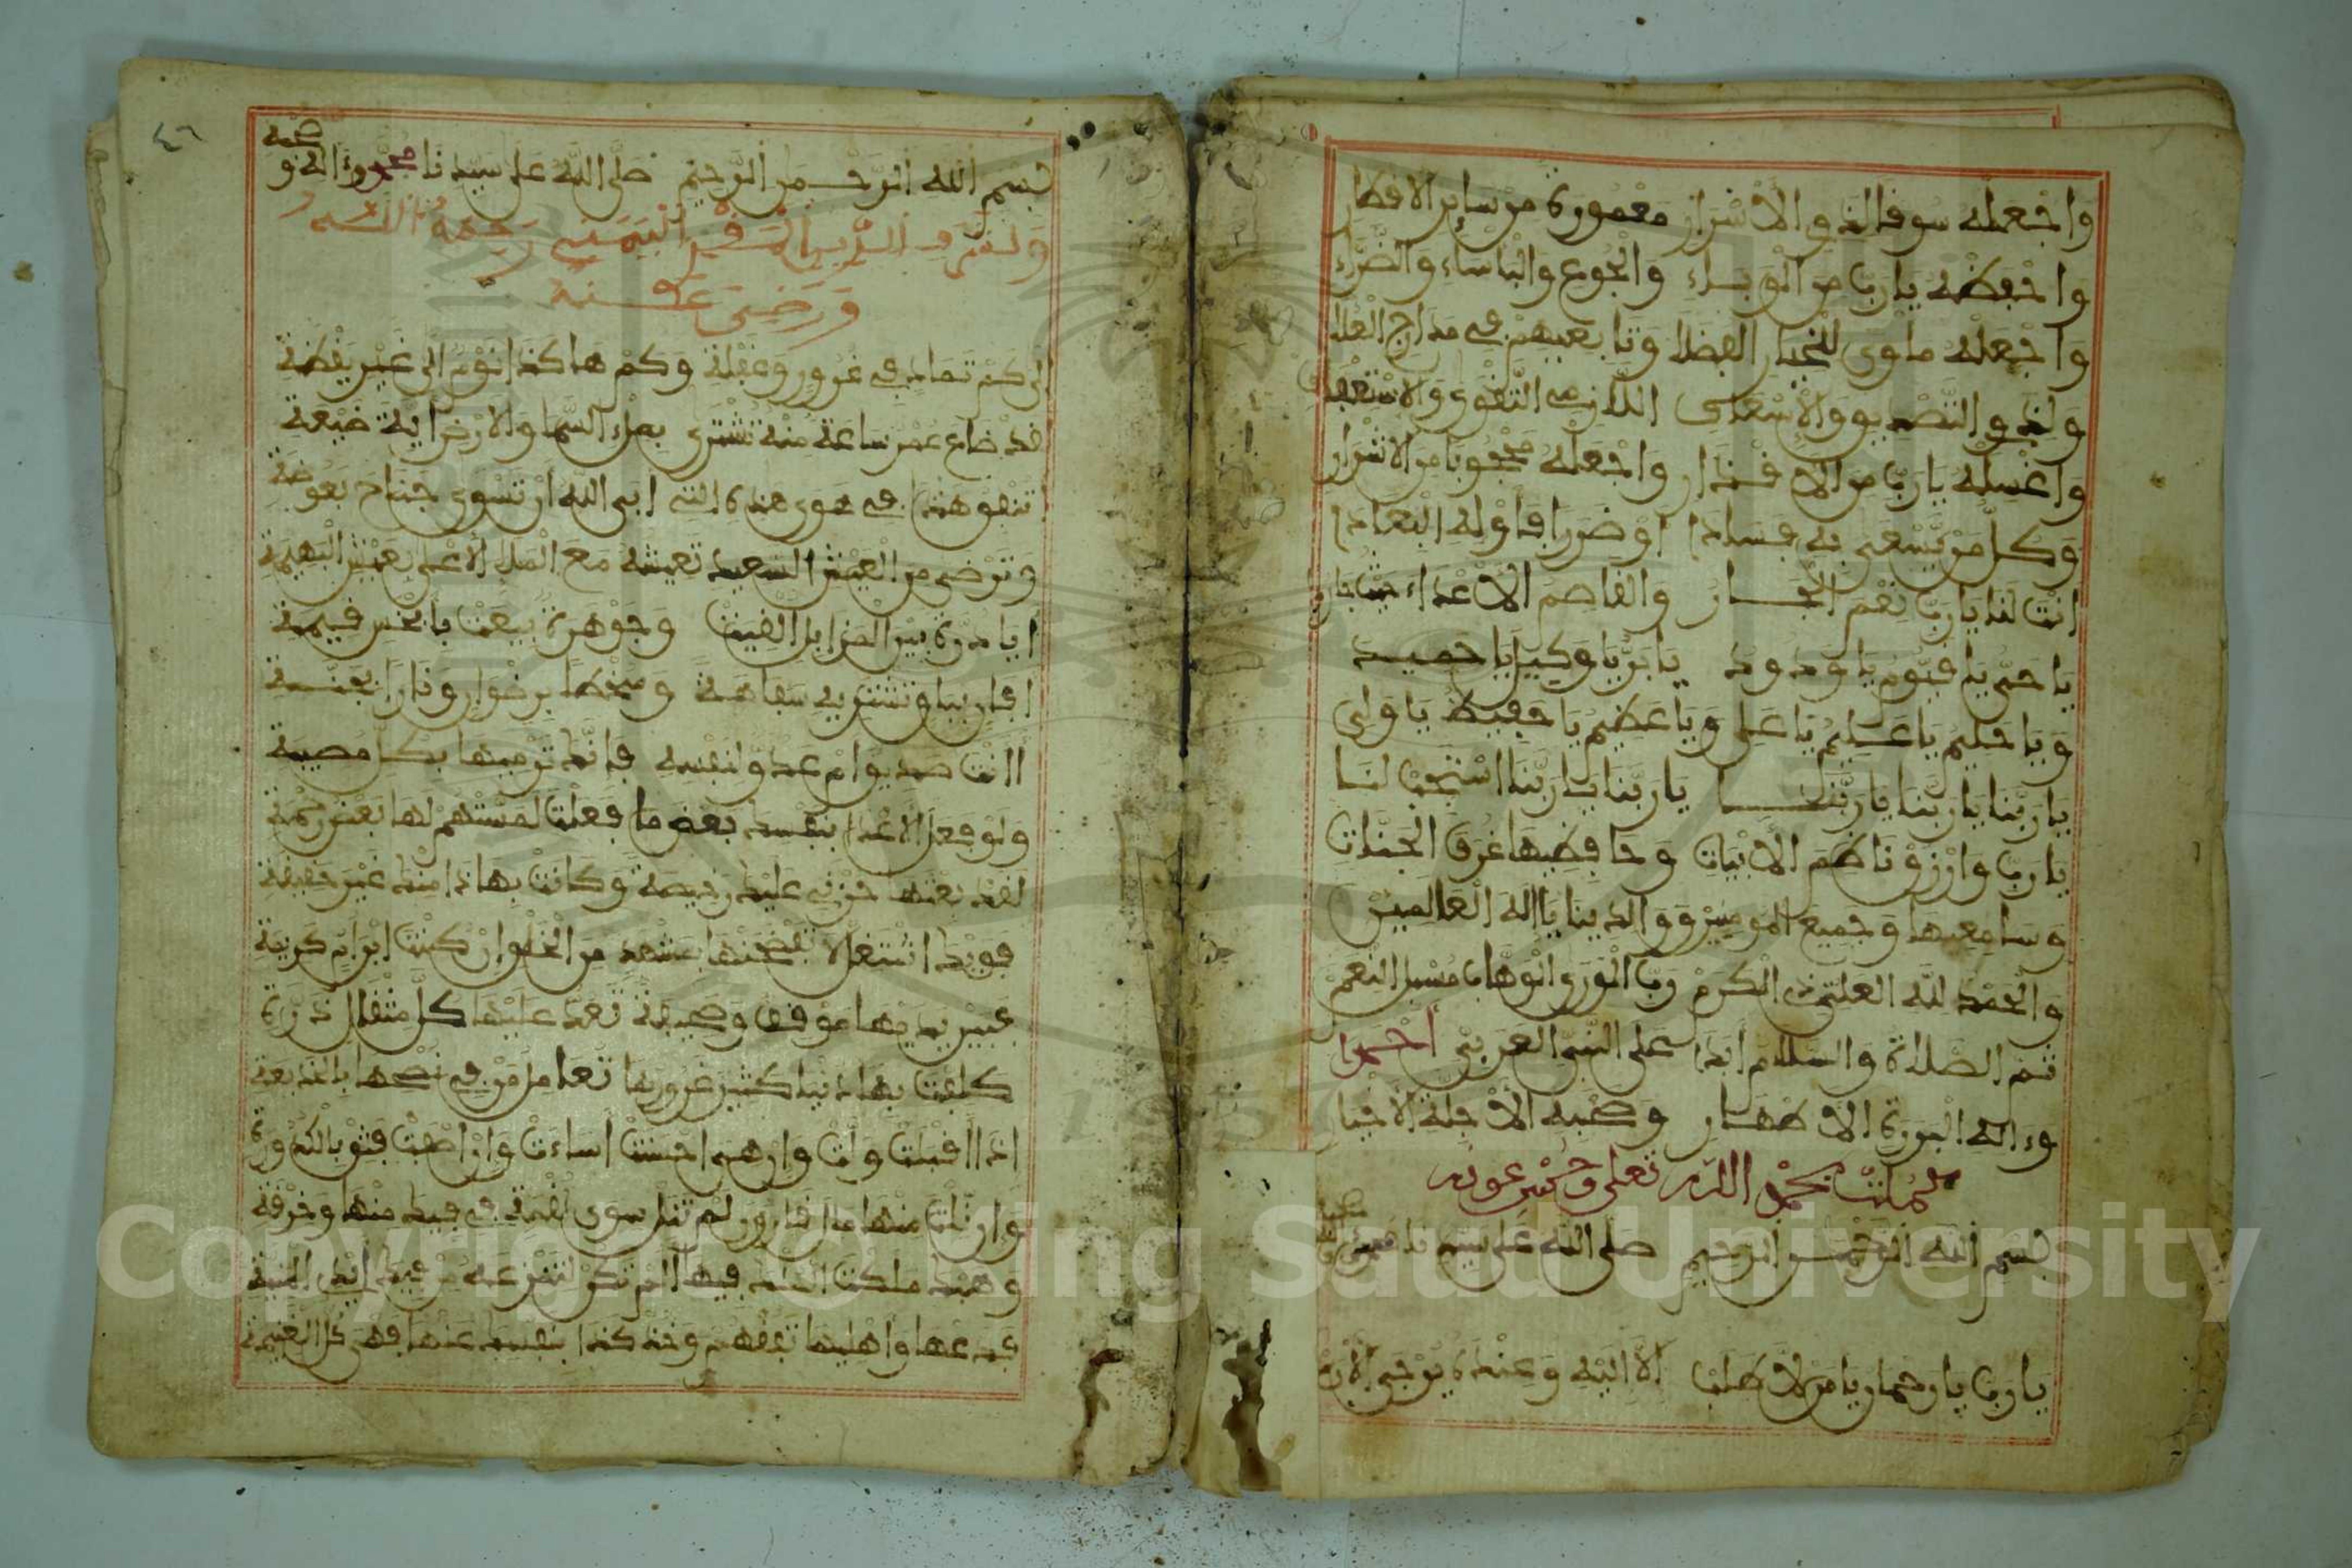 واجعله سوفا لذو الاسرار معمورة من ساير الاقطار
واحفظه يا رب من الوباء والجوع والباساء والضراء
واجعله ماوى لخيار الفضلا وتابعيهم في مدارج العلا
ولذو التصديق والاسعدى اللازمي التقوى والاستعداد
واغسله يا رب من الاقذار واجعله محجوبا من الاشرار
وكل من يسعى به فسادا او ضررا فاوله البعادا
انت لنا يا رب نعم الجار والقاصم الاعداء حيث جاروا
يا حي يا قيوم يا ودود يا بر يا وكيل يا حميد
ويا حليم يا عليم يا علي ويا عظيم يا حفيظ يا ولي
يا ربنا يا ربنا يا ربنا يا ربنا يا ربنا استجب لنا
يا رب وارزق ناظم الابيات وحافظيها غرف الجنات
وسامعيها وجميع المومنين ووالدينا يا اله العالمين
والحمد لله العلي ذي الكرم رب الورى الوهاب مسبل النعم
ثم الصلاة والسلام ابدا على النبي العربي احمدا
وءاله البررة الاطهار وصحبه الاجلة الاخيار
كملت بحمد الله تعلى وحسن عونه
بسم الله الرحمن الرحيم صلى الله على سيدنا محمد
يا رب يا رحمان يا من لا طلب الا اليه وعنده يرجى الارب
٤٦
بسم الله الرحمن الرحيم صلى الله على سيدنا محمد وءاله وصحبه
ولشرف الدين المقري اليمني رحمه الله
ورضي عنه
الى كم تماد في غرور وغفلة وكم هاكذا نوم الى غير يقظة
لقد ضاع عمر ساعة منه تشترى بملء السما والارض اية ضيعة
اتنفق هذا في هوى هذه التي ابى الله ان تسوى جناح بعوضة
وترضى من العيش السعيد تعيشه مع الملا الاعلى بعيش البهيمة
ايا درة بين المزابل القيت وجوهرة بيعت بابخس قيمة
افان بباق تشتريه سفاهة وسخطا برضوان ونارا بجنة
اانت صديق ام عدو لنفسه فانك ترميها بكل مصيبة
ولو فعل الاعدا بنفسك بعض ما فعلت لمستهم لها بعض رحمة
لقد بعتها حزني عليك رخيصة وكانت بهاذا منك غير حقيقة
فويك استقل لا تفضحنها بمشهد من الخلق ان كنت ابن ام كريمة
فبين يديها موقف وصحيفة تعد عليها كل مثقال ذرة
كلفت بها دنيا كثير غرورها تعامل من في نصحها بالخديعة
اذا اقبلت ولت وان هي احسنت اساءت وان اصفت فثق بالكدورة
وان نلت منها مال قارون لم تنل سوى لقمة في فيك منها وخرقة
وهبك ملكت الملك فيها الم تكن لتنزعه من فيك ايدي المنية
فدعها واهليها تغظهم وخذ كذا بنفسك عنها فهي كل الغنيمة